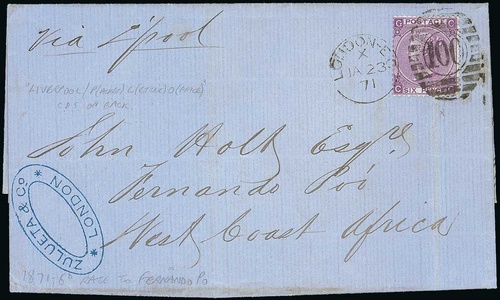 Via L'pool
LONDON-E.C
X
JA 23
71
100
G POSTAGE C
C SIX PENCE G
"LIVERPOOL/P(ACKET) L(ETTER) O(FFICE)"
CDS ON BACK
John Holt Esqre
Fernando Póo
West Coast Africa
ZULUETA & Co.
* LONDON *
1871-6d RATE TO FERNANDO PO